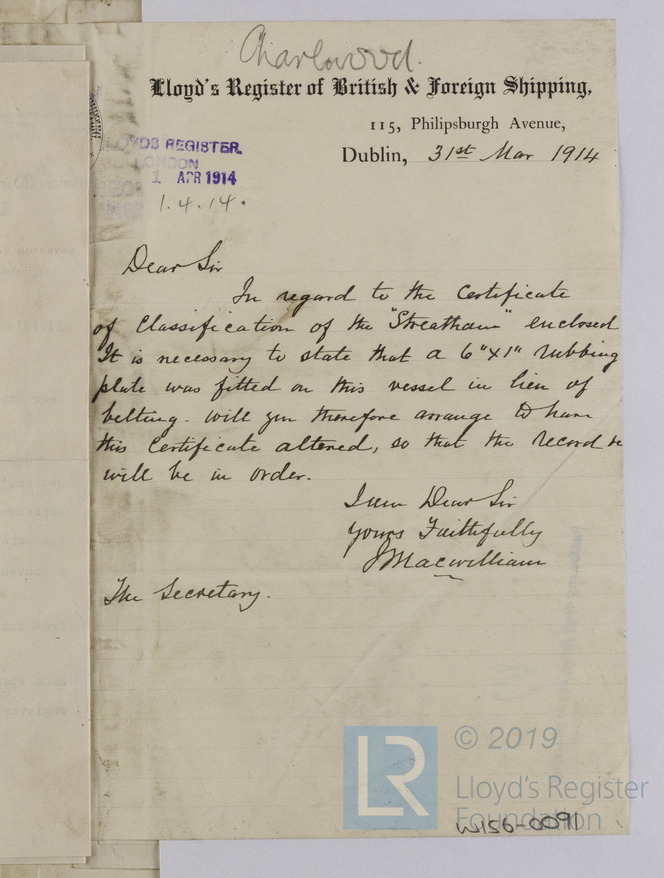 Charlwood.
Lloyd's Register of British & Foreign Shipping,
115, Philipsburgh Avenue,
Dublin, 31st Mar 1914
LOYDS REGISTER.
LONDON
1 APR 1914
1.4.14.
Dear Sir
In regard to the Certificate
of Classification of the "Streatham" enclosed
It is necessary to state that a 6"x1" rubbing
plate was fitted on this vessel in lieu of
belting. Will you therefore arrange to have
this Certificate altered, so that the record
will be in order.
I am Dear Sir
Yours Faithfully
J Macwilliam
The Secretary.
© 2019
LR
Lloyd's Register
Foundation
W156-0091